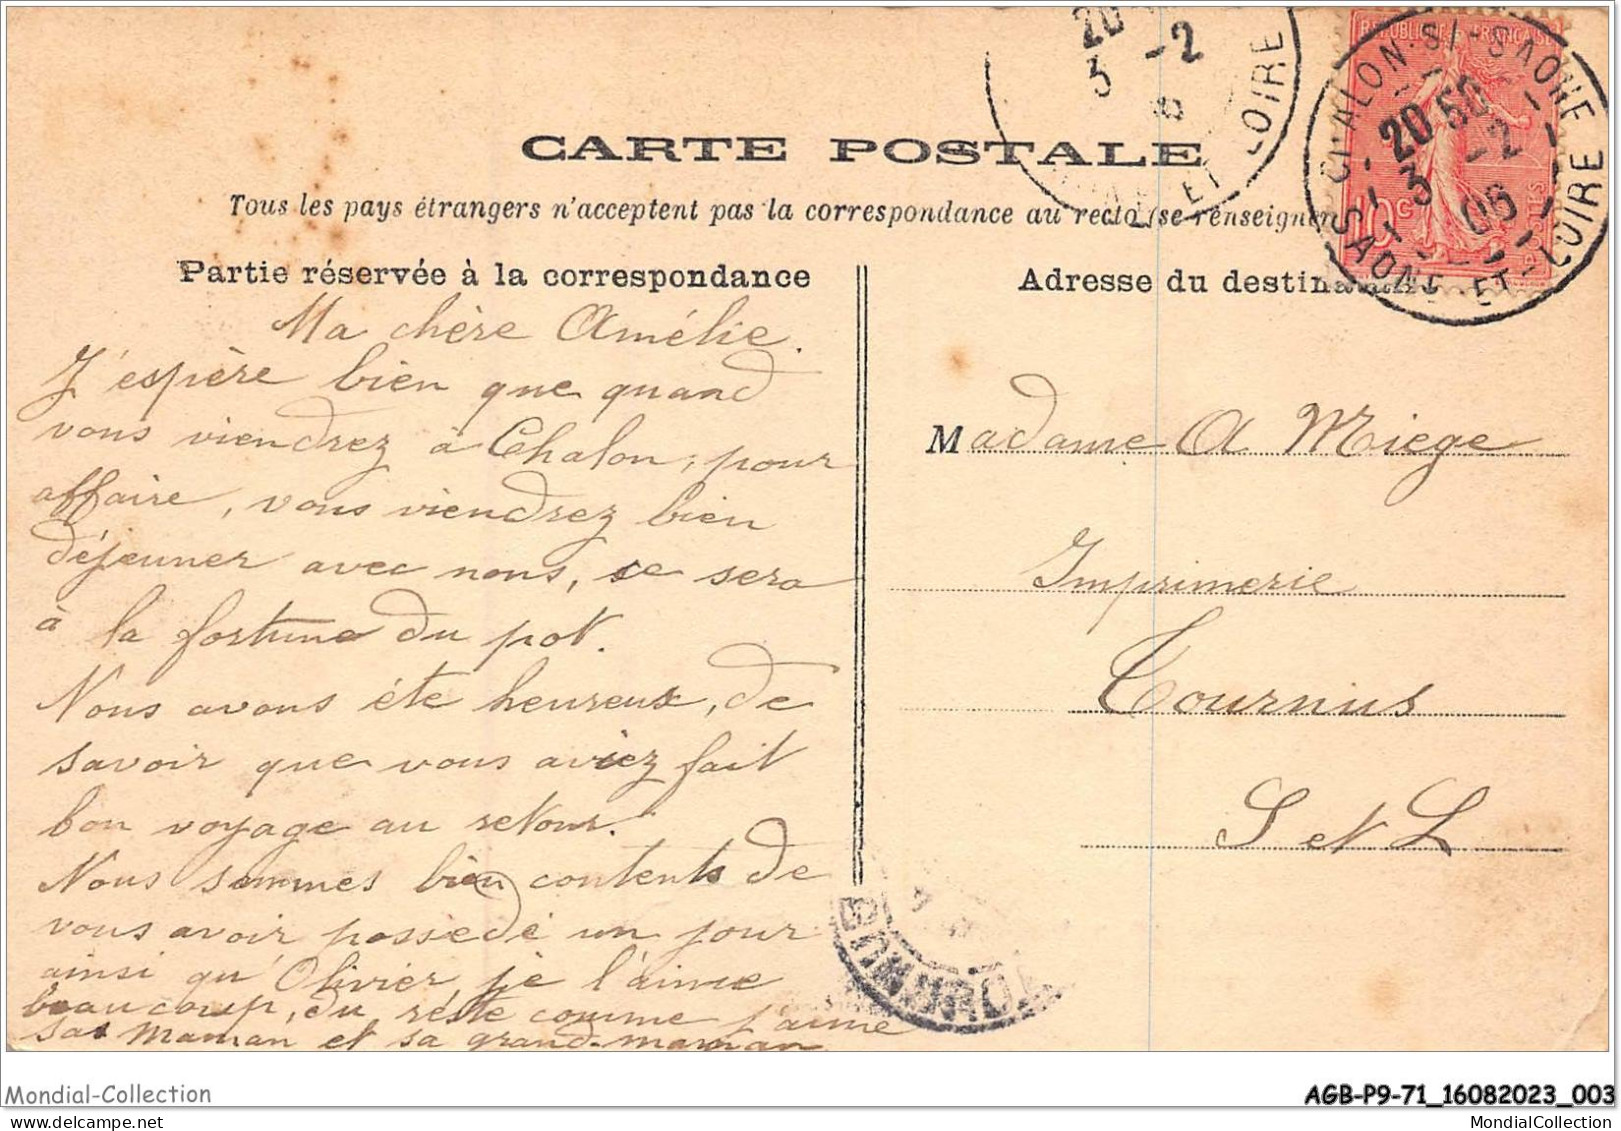 CARTE POSTALE
Tous les pays étrangers n'acceptent pas la correspondance au recto (se renseigner
Partie réservée à la correspondance
Ma chère Amélie.
J'espère bien que quand
vous viendrez à Chalon, pour
affaire, vous viendrez bien
déjeuner avec nous, se sera
à la fortune du pot.
Nous avons été heureux, de
savoir que vous aviez fait
bon voyage au retour.
Nous sommes bien contents de
vous avoir possédé un jour
ainsi qu'Olivier, je l'aime
beaucoup, du reste comme j'aime
sa maman et sa grand-maman
Adresse du destina
Madame A Miege
Imprimerie
Tournus
S et L
REPUBLIQUE FRANÇAISE
10c
POSTES
CHALON-S/-SAONE
20 50
3 -2
06
SAONE-ET-LOIRE
20
3 -2
ET LOIRE
TOURNUS
Mondial-Collection
AGB-P9-71_16082023_003
MondialCollection